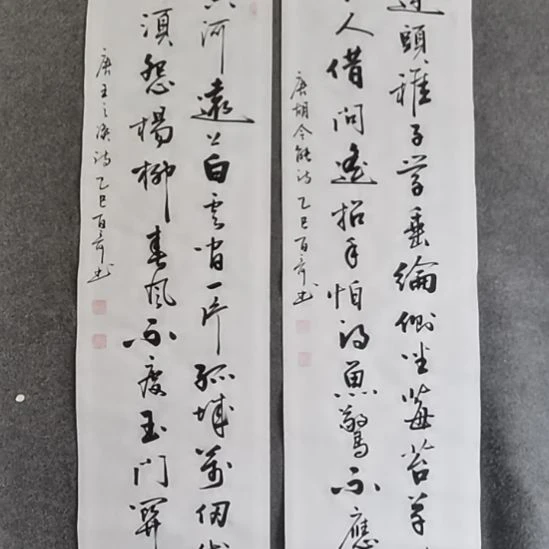 蓬頭稚子学垂綸側坐莓苔草
人借问遥招手怕得魚驚不應
唐胡令能诗乙巳百奇书
河遠上白雲间一片孤城萬仞
须怨楊柳春风不度玉门關
唐王之涣诗乙巳百奇书